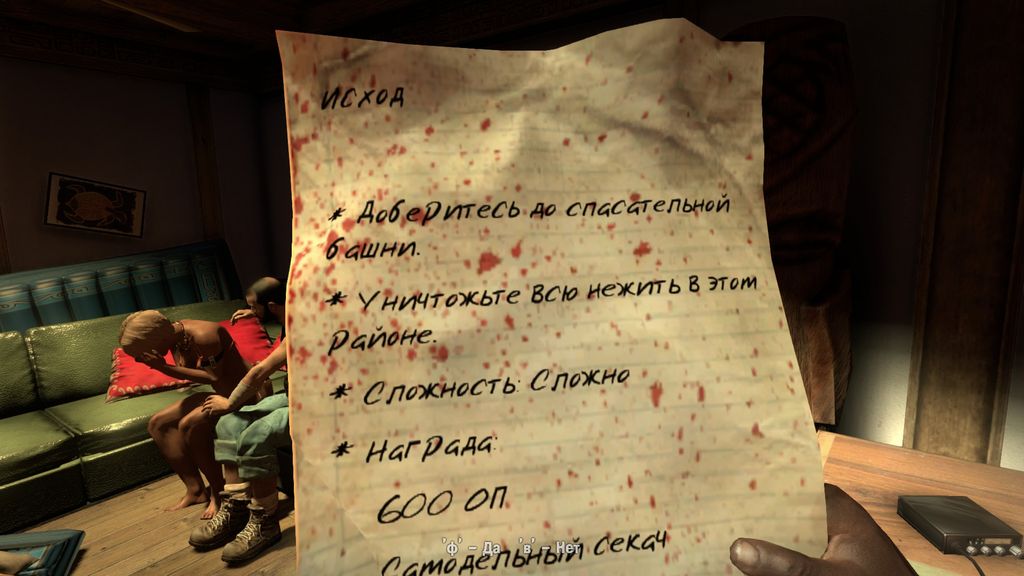 ИСХОД
* Доберитесь до спасательной
башни.
* Уничтожьте всю нежить в этом
районе.
* Сложность: Сложно
* Награда:
600 ОП
'ф' – Да 'в' – Нет
Самодельный секач